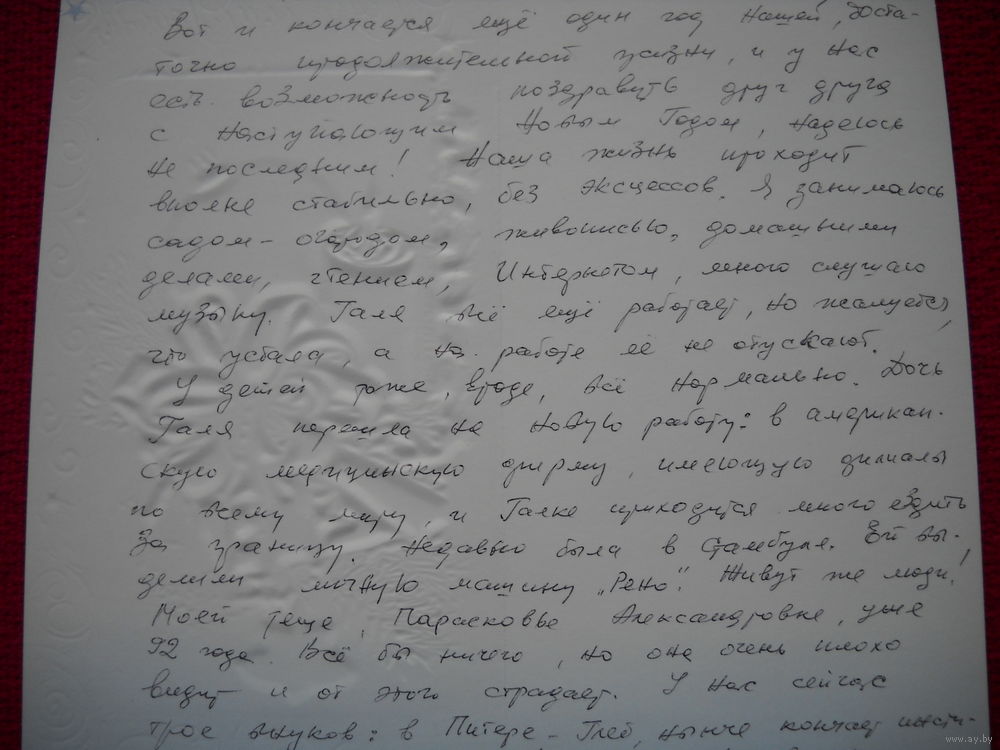 Вот и кончается ещё один год нашей, доста-
точно продолжительной жизни, и у нас
есть возможность поздравить друг друга
с наступающим Новым Годом, надеюсь
не последним! Наша жизнь проходит
вполне стабильно, без эксцессов. Я занимаюсь
садом-огородом, живописью, домашними
делами, чтением, Интернетом, много слушаю
музыку. Галя всё ещё работает, но жалуется,
что устала, а на работе её не отпускают.
У детей тоже, вроде, всё нормально. Дочь
Галя перешла на новую работу: в американ-
скую медицинскую фирму, имеющую филиалы
по всему миру, и Галке приходится много ездить
за границу. Недавно была в Стамбуле. Ей вы-
делили личную машину „Рено". Живут же люди!
Моей тёще, Парасковье Александровне, уже
92 года. Всё бы ничего, но она очень плохо
видит и от этого страдает. У нас сейчас
трое внуков: в Питере - Глеб, нынче кончает инсти-
www.ay.by